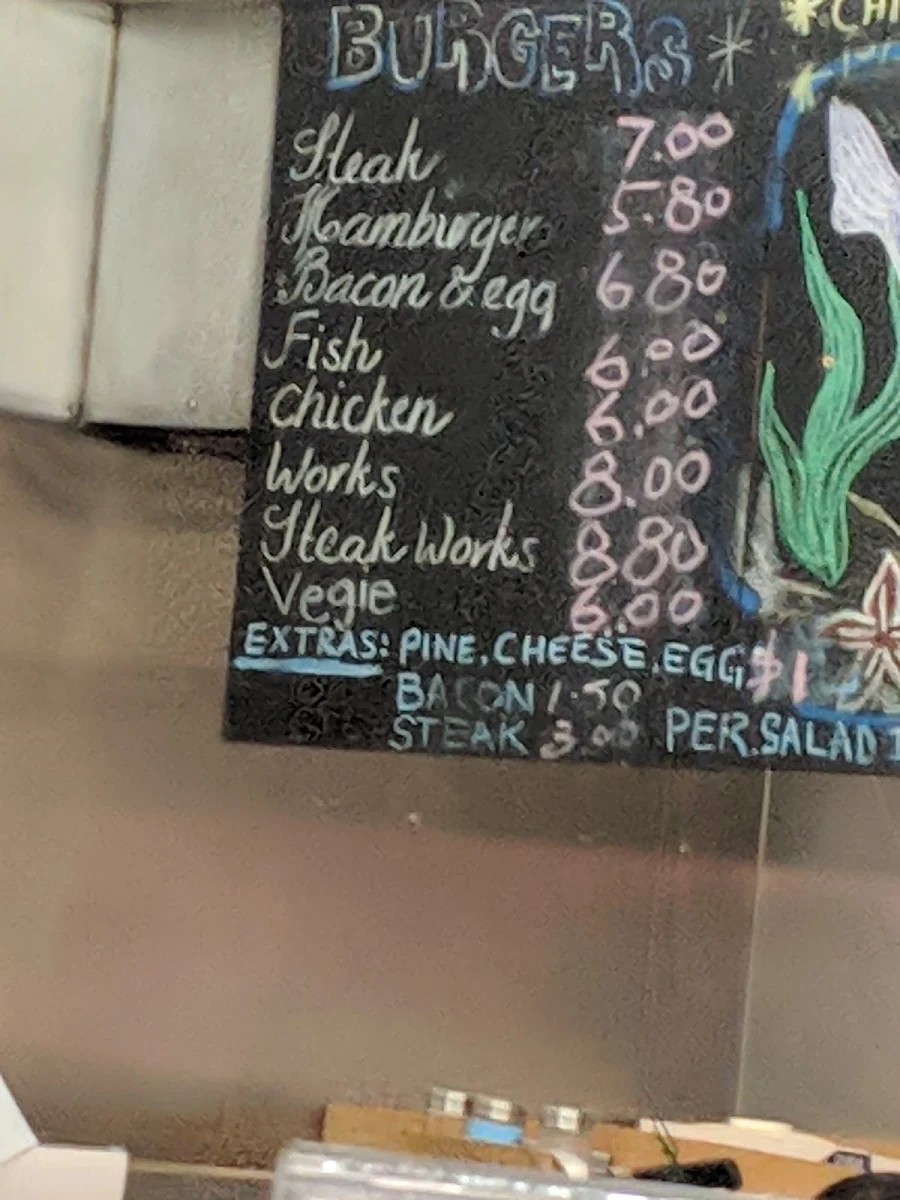 BURGERS *
*CHI
Steak 7.00
Hamburger 5.80
Bacon & egg 6 80
Fish 6.00
Chicken 6.00
Works 8.00
Steak Works 8 80
Vegie 6.00
EXTRAS: PINE, CHEESE, EGG $1
BACON 1.50
STEAK 3.00 PER.SALAD